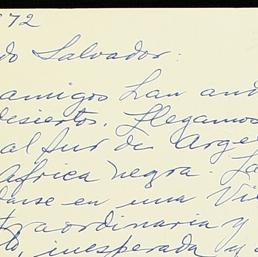 72
do Salvador:
amigos han and
desiertos. Llegamos
al sur de Arge
Africa negra. La
darse en una Vi
traordinaria y
inesperada y